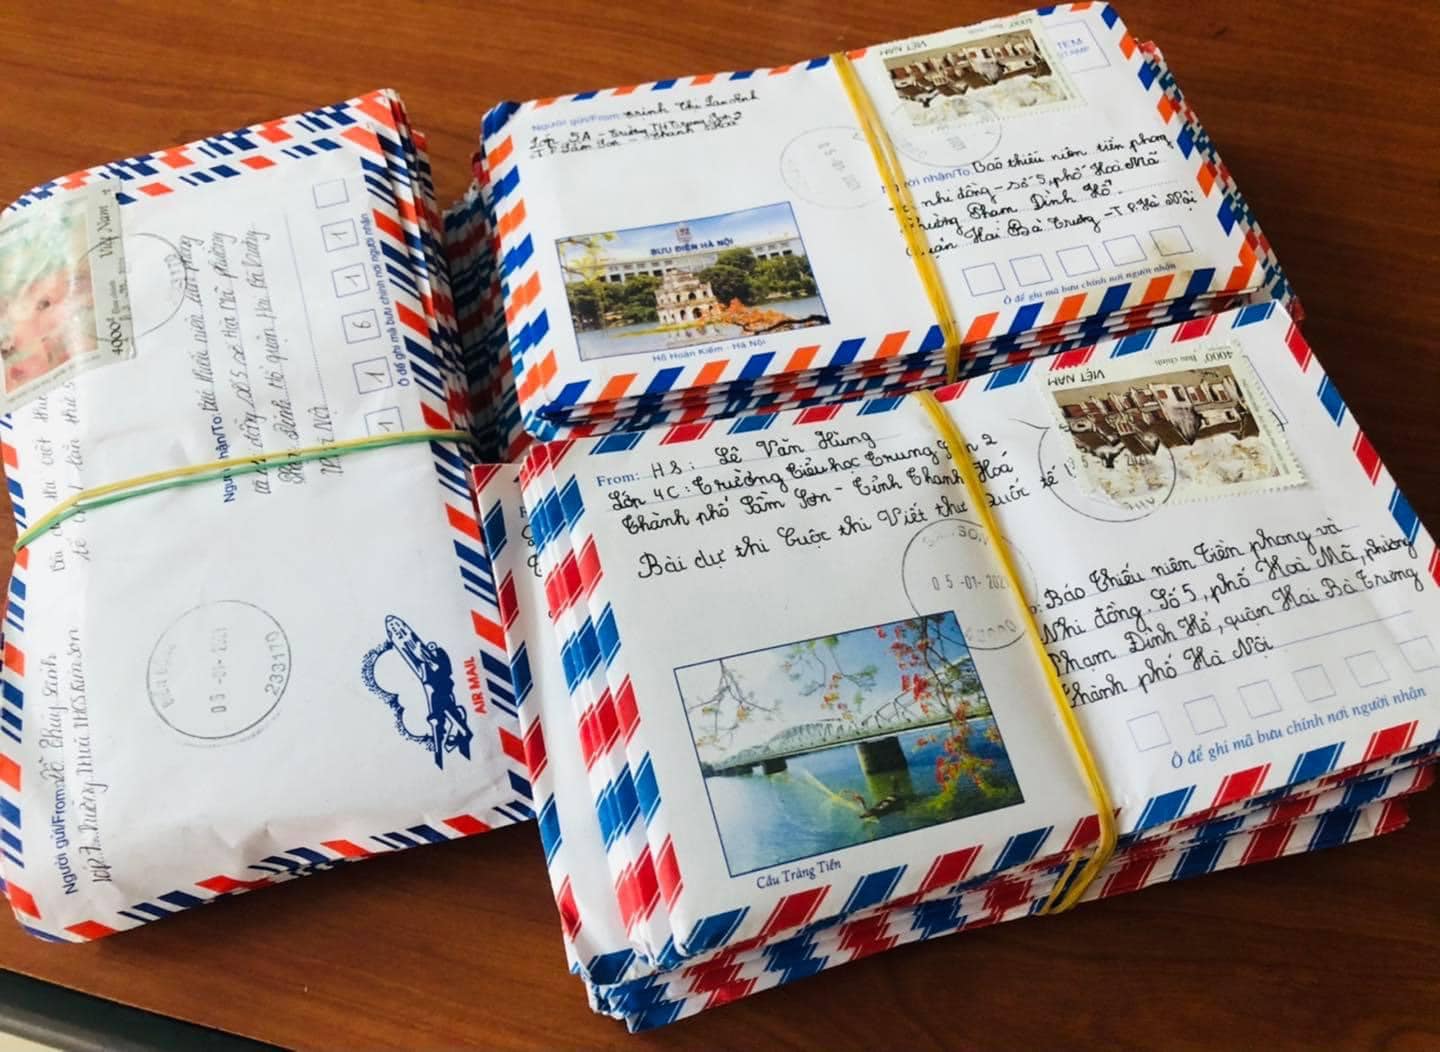 Người gửi/From: Trịnh Thị Lan Anh
Lớp 5A - Trường TH Trung Sơn 2
T.P Sầm Sơn - Thanh Hoá
VIỆT NAM
4000đ Bưu chính
TEM
STAMP
05-01-2021
Người nhận/To Báo thiếu niên tiền phong
nhi đồng - Số 5, phố Hoà Mã
Phường Phạm Đình Hổ
Quận Hai Bà Trưng - T.P. Hà Nội
Ô để ghi mã bưu chính nơi người nhận
BƯU ĐIỆN HÀ NỘI
Hồ Hoàn Kiếm - Hà Nội
From: HS: Lê Văn Hùng
Lớp 4C: Trường Tiểu học Trung Sơn 2
Thành phố Sầm Sơn - Tỉnh Thanh Hoá
Bài dự thi Cuộc thi Viết thư Quốc tế
VIỆT NAM
4000đ Bưu chính
05-01-2021
Báo Thiếu niên Tiền phong và
Nhi đồng. Số 5, phố Hoà Mã, phường
Phạm Đình Hổ, quận Hai Bà Trưng
thành phố Hà Nội
Ô để ghi mã bưu chính nơi người nhận
Cầu Tràng Tiền
Việt Nam
4000đ
Người nhận/To: Báo thiếu niên tiền phong
số 5
Phạm Đình Hổ quận Hai Bà trưng
Hà Nội
1 1 6 1 1
Ô để ghi mã bưu chính nơi người nhận
233170
AIR MAIL
Người gửi/From: